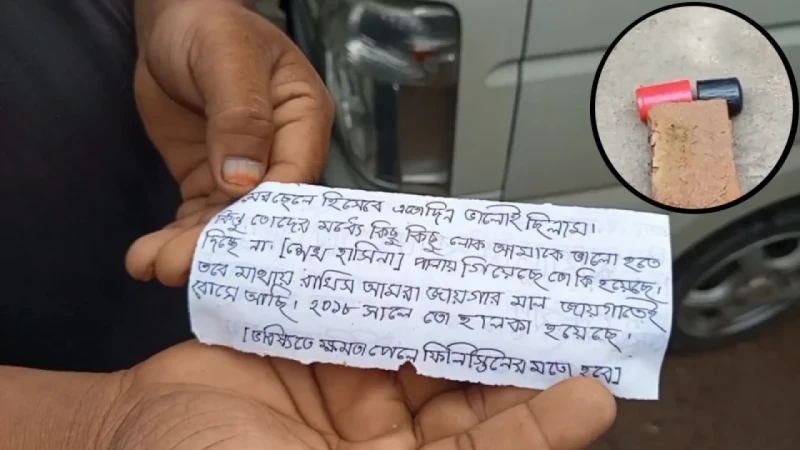 ছেলে হিসেবে এতোদিন ভালোই ছিলাম।
কিন্তু তোদের মধ্যে কিছু কিছু লোক আমাকে ভালো হতে
দিচ্ছে না। [শেখ হাসিনা] পালায় গিয়েছে তো কি হয়েছে।
তবে মাথায় রাখিস আমরা জায়গার মাল জায়গাতেই
বসে আছি। ২০১৮ সালে তো হালকা হয়েছে।
[ভবিষ্যতে ক্ষমতা পেলে ফিলিস্তিনের মতো হবে]